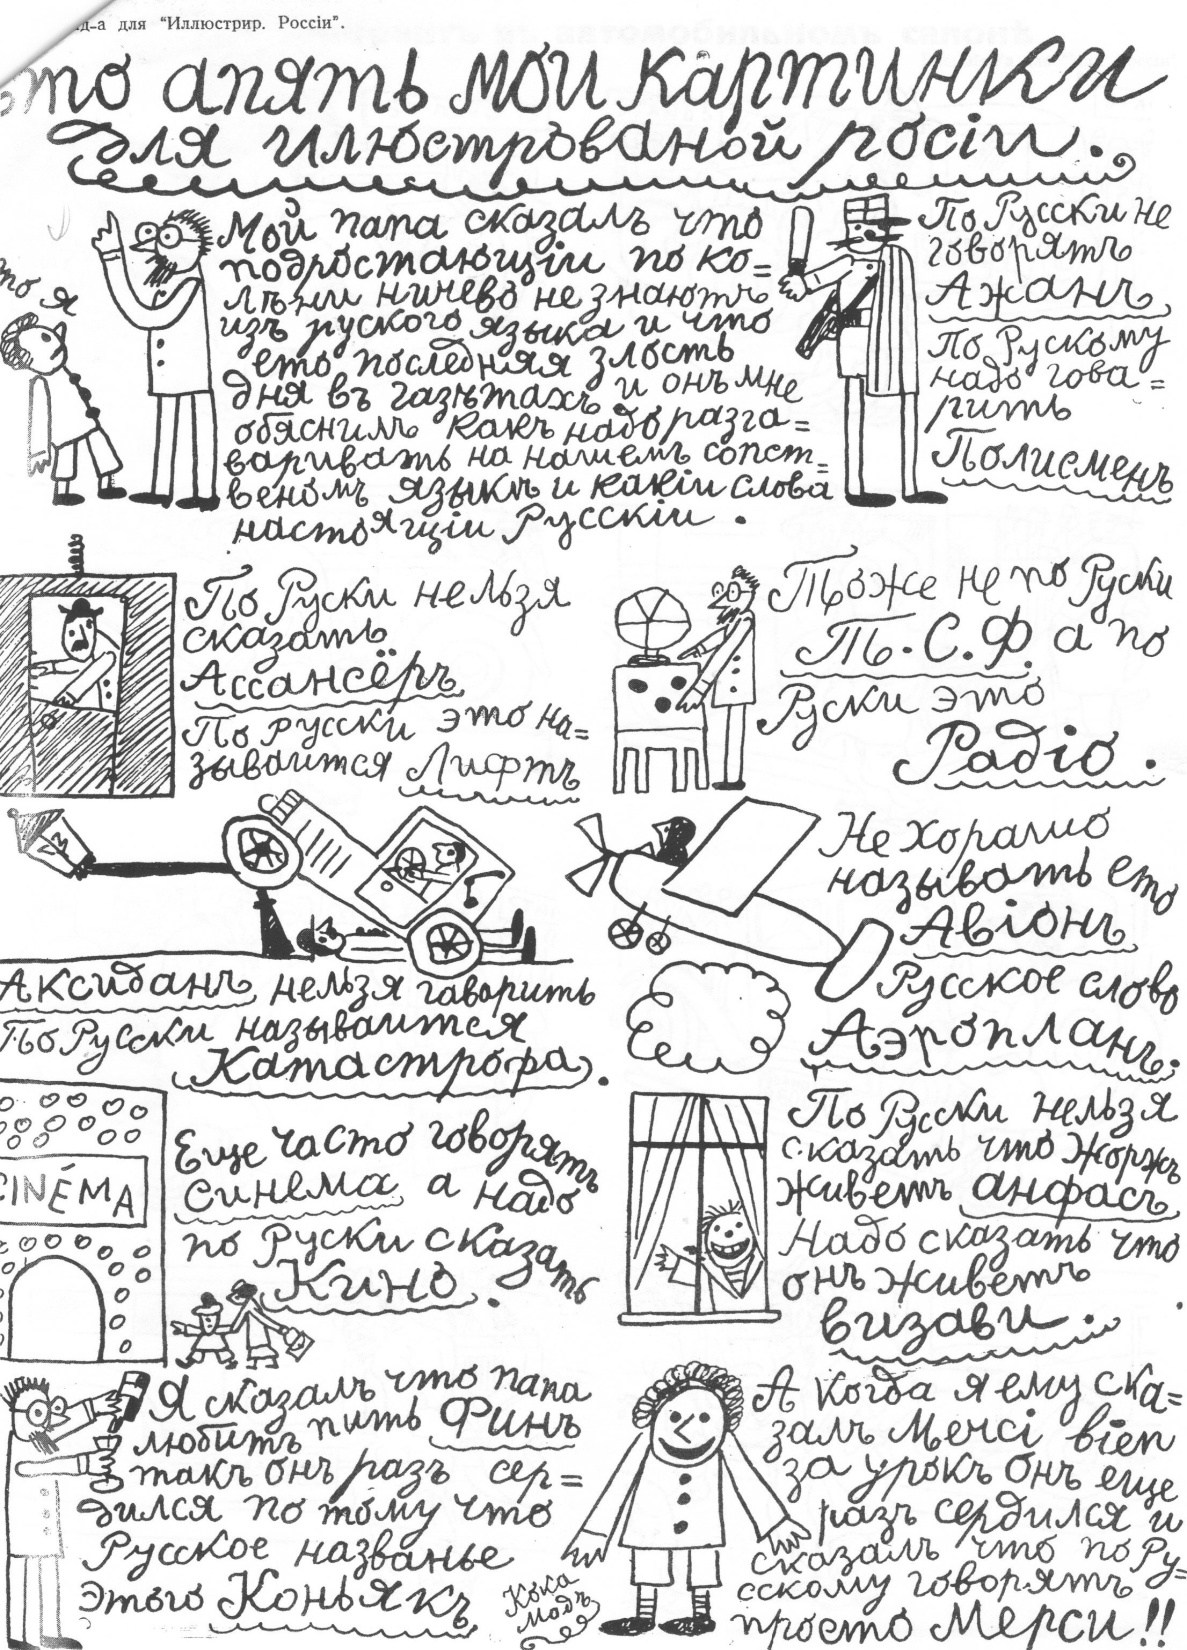 для "Иллюстрир. Россіи".
это апять мои картинки
для илюстрованой росіи.
это я
Мой папа сказалъ что
подростающіи по ко=
лѣни ничево не знаютъ
изъ руского языка и что
ето последняя злость
дня въ газѣтахъ и онъ мне
обяснилъ какъ надо разга=
варивать на нашемъ сопст=
веномъ языкѣ и какіи слова
настоящіи Русскіи.
По Русски не
говорятъ
Ажанъ
По Рускому
надо гова=
рить
Полисменъ
По Руски нельзя
сказать
Ассансёръ
По русски это на=
зываится Лифтъ
Тоже не по Руски
Т.С.Ф. а по
Руски это
Радіо.
Аксиданъ нельзя гаворить
По Русски называится
Катастрофа.
Не хорашо
называть ето
Авіонъ
Русское слово
Аэропланъ.
CINÉMA
Еще часто говорятъ
синема а надо
по Руски сказать
Кино.
По Русски нельзя
сказать что Жоржъ
живетъ анфасъ
Надо сказать что
онъ живетъ
визави.
Я сказалъ что папа
любитъ пить Финъ
такъ онъ разъ сер=
дился по тому что
Русское названье
этого Коньякъ
Кока
Модъ
А когда я ему ска=
залъ Мерсі bien
за урокъ онъ еще
разъ сердился и
сказалъ что по Ру=
сскому говорятъ
просто Мерси!!